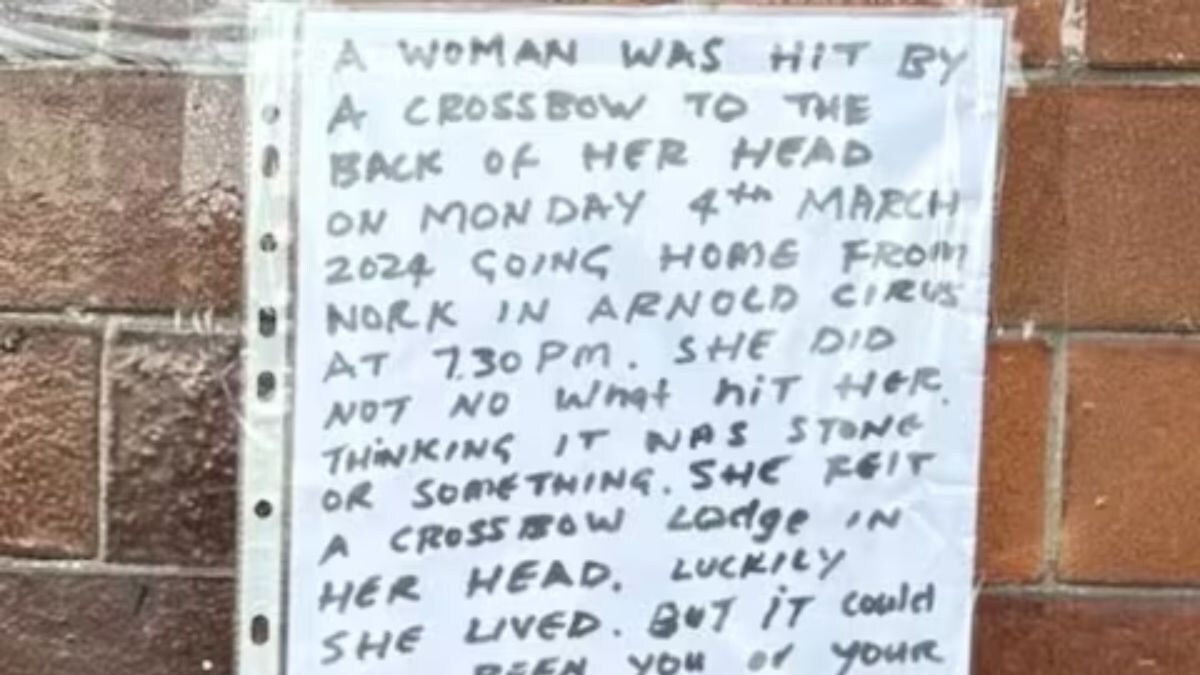 A WOMAN WAS HIT BY
A CROSSBOW TO THE
BACK OF HER HEAD
ON MONDAY 4th MARCH
2024 GOING HOME FROM
WORK IN ARNOLD CIRUS
AT 7.30 PM. SHE DID
NOT NO What hIT HER.
THINKING IT WAS STONE
OR SOMETHING. SHE FELT
A CROSSBOW Lodge IN
HER HEAD. LUCKILY
SHE LIVED. BUT IT could
BEEN YOU or YOUR